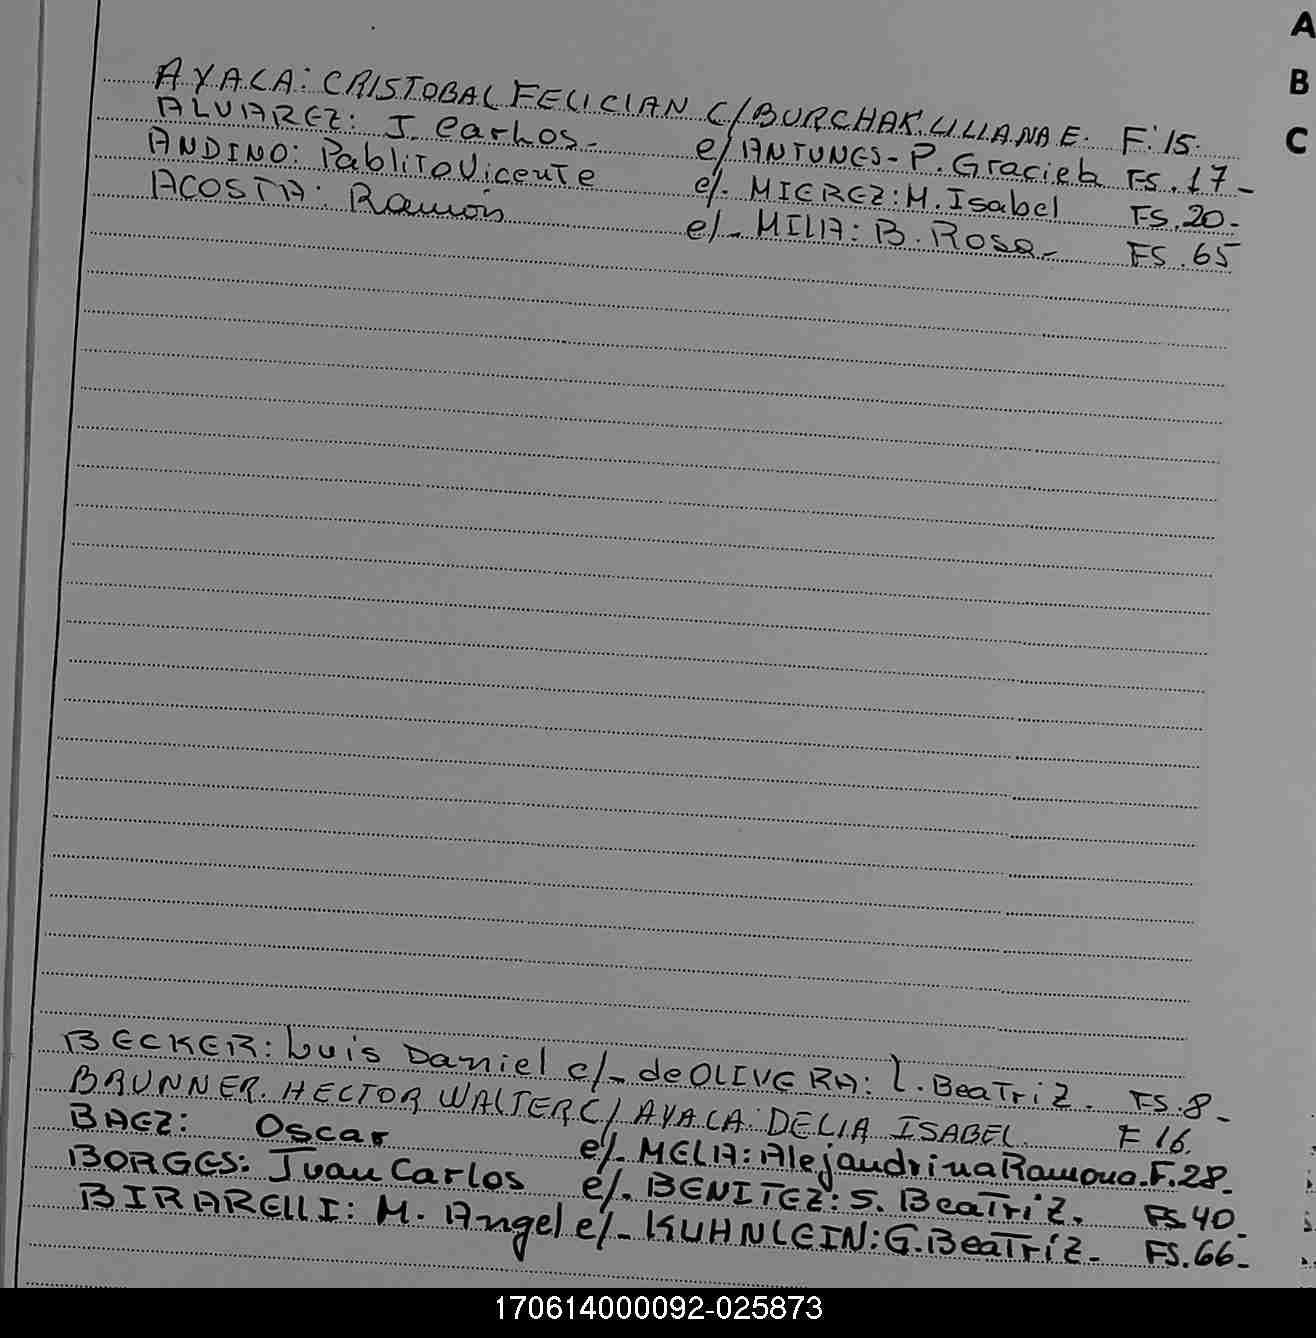 A
B
C
AYALA: CRISTOBAL FELICIAN C/BURCHAK. LILIANA E. F. 15.
ALVAREZ: J. Carlos - c/ ANTUNES - P. Graciela FS. 17 -
ANDINO: Pablito Vicente c/. MIEREZ: M. Isabel FS. 20 -
ACOSTA: Ramón c/- MILIA: B. Rosa - FS. 65
BECKER: Luis Daniel c/- de OLIVERA: L. Beatriz. FS. 8 -
BRUNNER. HECTOR WALTER C/ AYALA: DELIA ISABEL. F 16.
BAEZ: Oscar c/. MELIA: Alejandrina Ramona. F. 28 -
BORGES: Juan Carlos c/. BENITEZ: S. Beatriz. FS. 40 -
BIRARELLI: M. Angel c/- KUHNLEIN: G. Beatriz - FS. 66 -
170614000092-025873